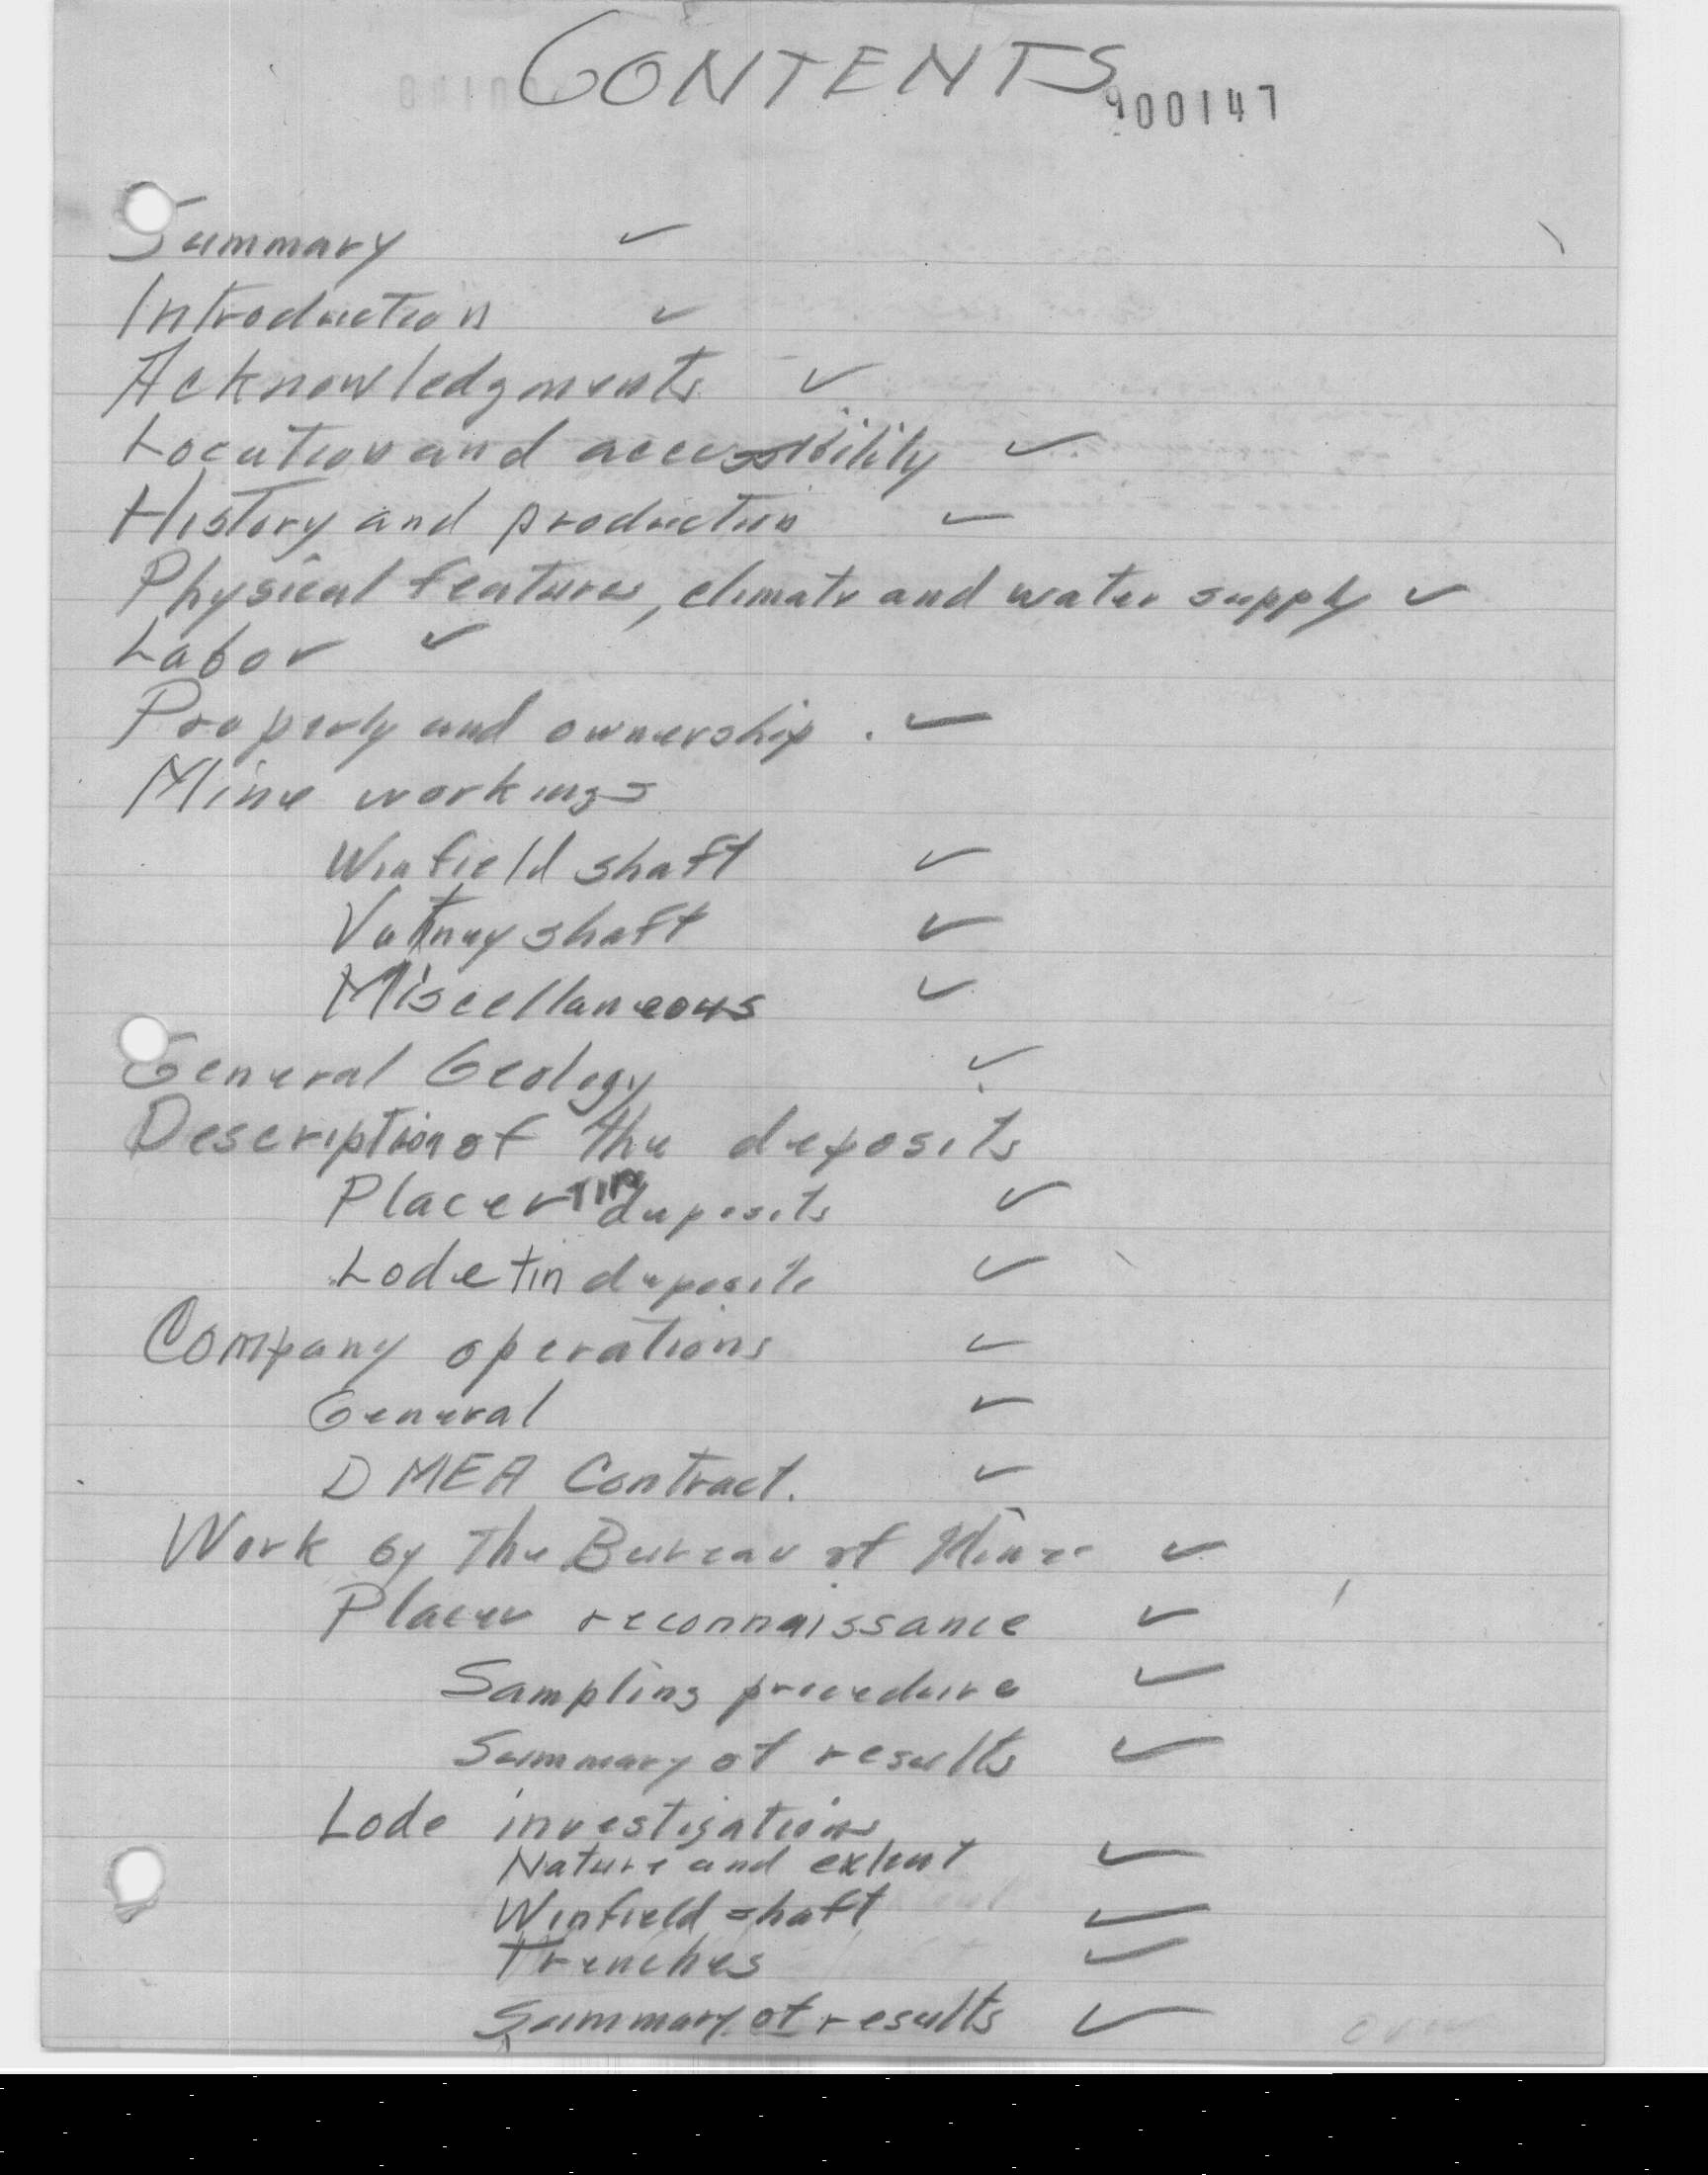 CONTENTS
900147
Summary ✓
Introduction ✓
Acknowledgments ✓
Location and accessibility ✓
History and production ✓
Physical features, climate and water supply ✓
Labor ✓
Property and ownership . ✓
Mine workings
Winfield shaft ✓
Vatney shaft ✓
Miscellaneous ✓
General Geology ✓
Description of the deposits
Placer TIN deposits ✓
Lode tin deposits ✓
Company operations ✓
General ✓
DMEA Contract. ✓
Work by the Bureau of Mines ✓
Placer reconnaissance ✓
Sampling procedure ✓
Summary of results ✓
Lode investigations
Nature and extent ✓
Winfield shaft ✓
Trenches ✓
Summary of results ✓
over